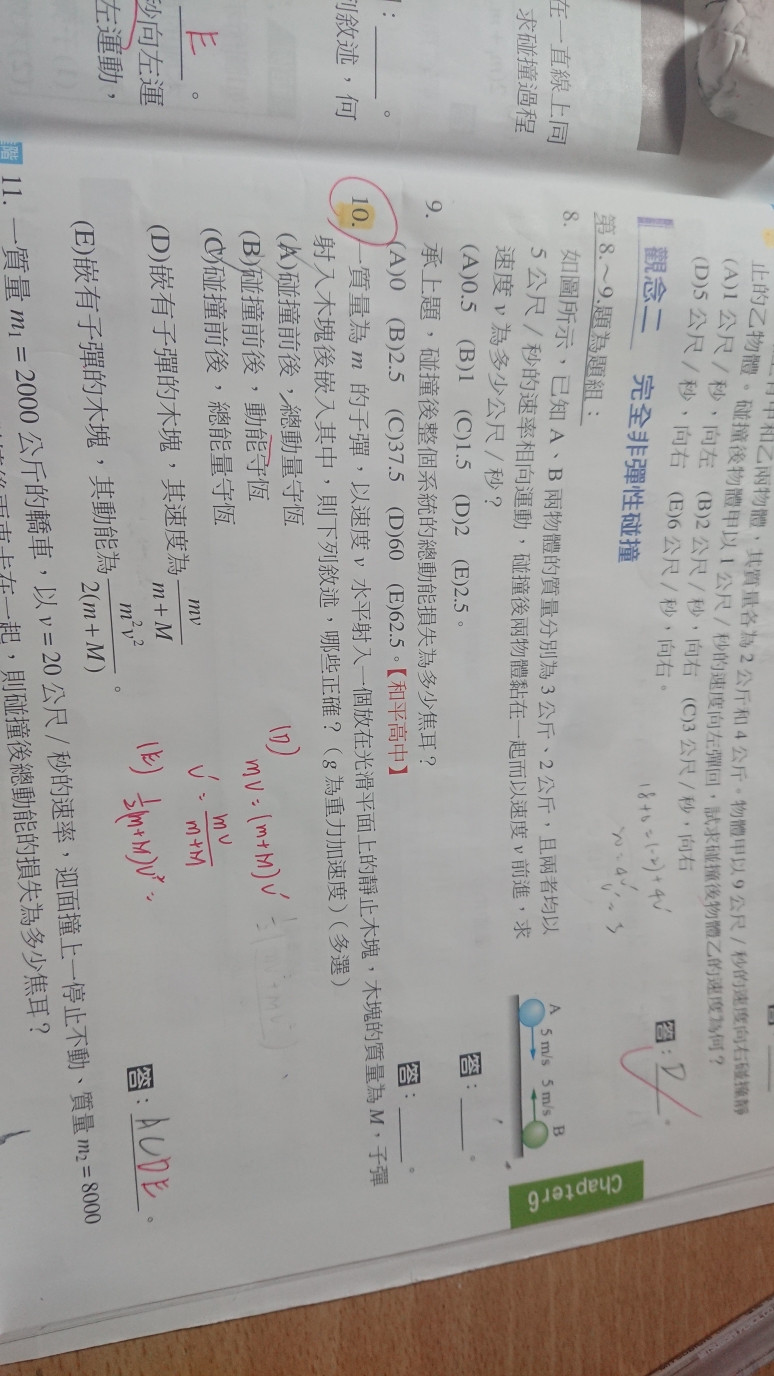 在一直線上同
求碰撞過程
列敘述,何
E。
秒向左運
左運動,
止的乙物體。碰撞後物體甲以 1 公尺/秒的速度向左彈回,試求碰撞後物體乙的速度為何?
(A)1 公尺/秒,向左 (B)2 公尺/秒,向右 (C)3 公尺/秒,向右
(D)5 公尺/秒,向右 (E)6 公尺/秒,向右。
答:D。
觀念二 完全非彈性碰撞
第 8.~9.題為題組:
8. 如圖所示,已知 A、B 兩物體的質量分別為 3 公斤、2 公斤,且兩者均以
5 公尺/秒的速率相向運動,碰撞後兩物體黏在一起而以速度 v 前進,求
速度 v 為多少公尺/秒?
(A)0.5 (B)1 (C)1.5 (D)2 (E)2.5。
A 5 m/s 5 m/s B
答:____。
9. 承上題,碰撞後整個系統的總動能損失為多少焦耳?
(A)0 (B)2.5 (C)37.5 (D)60 (E)62.5。【和平高中】
答:____。
10. 一質量為 m 的子彈,以速度 v 水平射入一個放在光滑平面上的靜止木塊,木塊的質量為 M,子彈
射入木塊後嵌入其中,則下列敘述,哪些正確?(g 為重力加速度)(多選)
(A)碰撞前後,總動量守恆
(B)碰撞前後,動能守恆
(C)碰撞前後,總能量守恆
(D)嵌有子彈的木塊,其速度為 mv/(m+M)
(E)嵌有子彈的木塊,其動能為 m²v²/2(m+M)。
(D)
mv = (m+M)v'
v' = mv/(m+M)
(E) ½(m+M)v'² =
答:ACDE。
11. 一質量 m₁ = 2000 公斤的轎車,以 v = 20 公尺/秒的速率,迎面撞上一停止不動、質量 m₂ = 8000
在一起,則碰撞後總動能的損失為多少焦耳?
Chapter 6